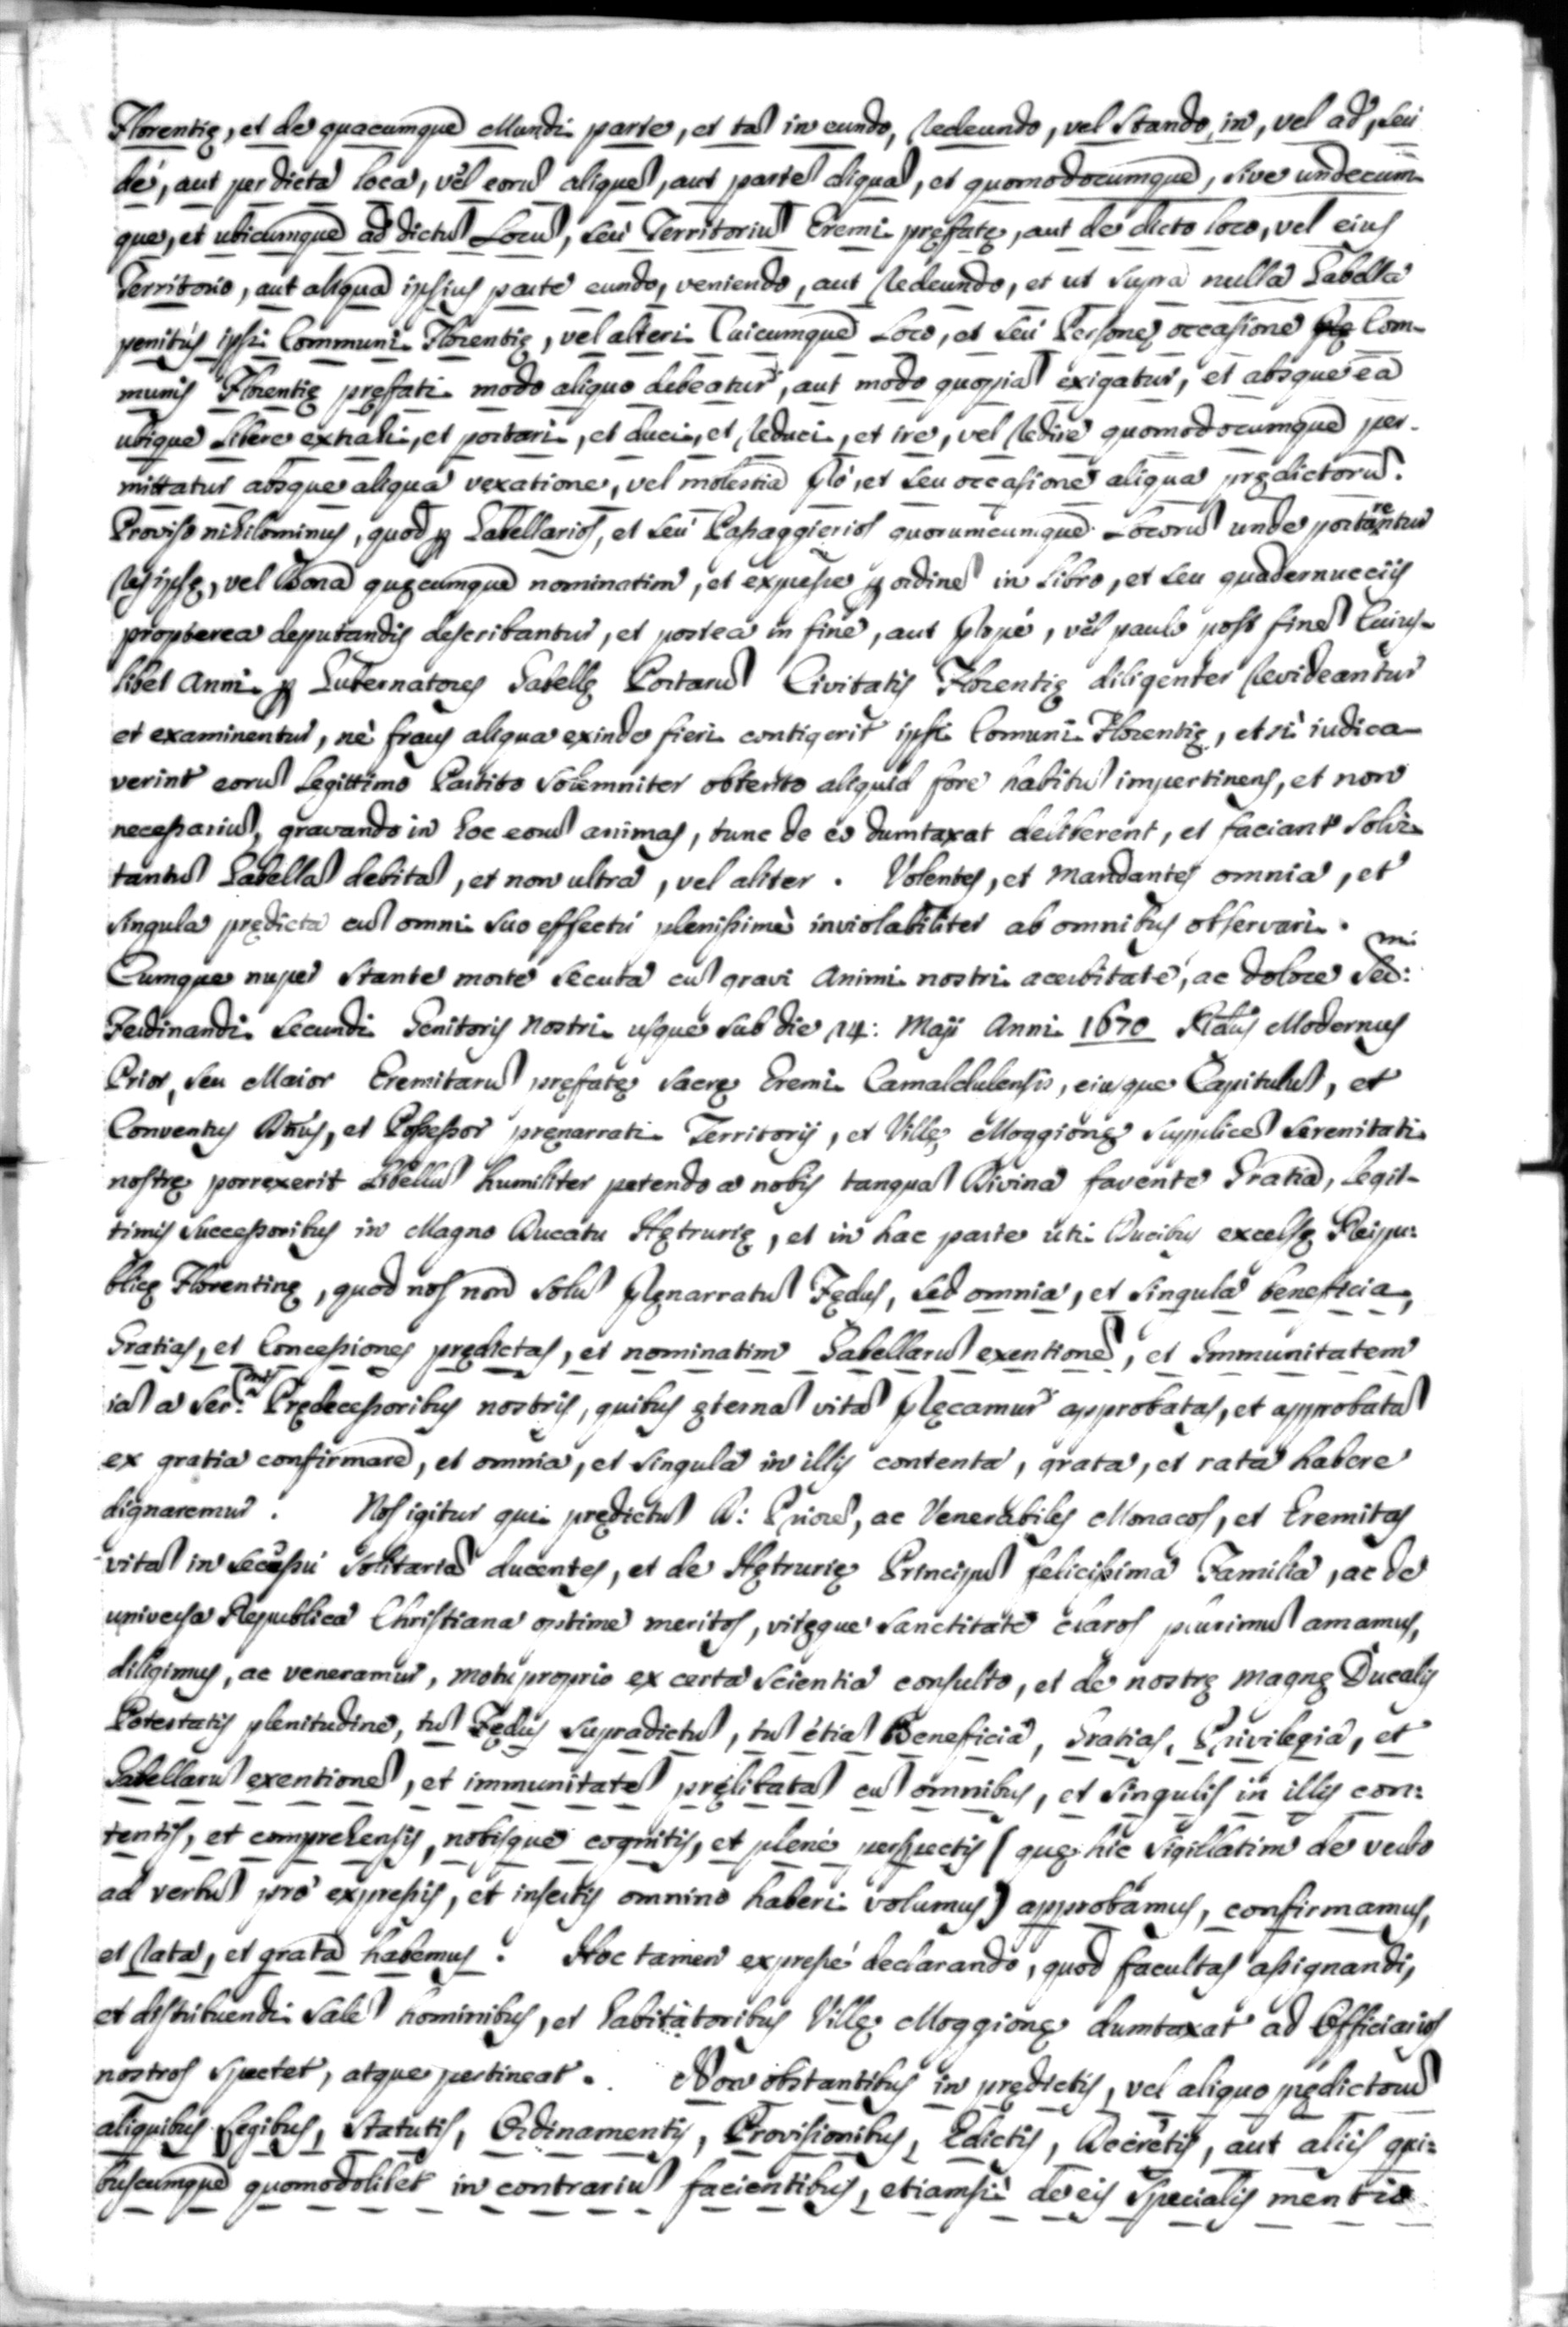 Florentię, et de quacumque Mundi parte, et tã in eundo, redeundo, vel stando in, vel ad, seu
de, aut per dicta loca, vel eorũ aliquẽ, aut partẽ aliquã, et quomodocumque, sive undecum-
que, et ubicumque ad dictũ Locũ, seu Territoriũ Eremi pręfatę, aut de dicto loco, vel eius
Territorio, aut aliqua ipsius parte eundo, veniendo, aut redeundo, et ut supra nulla Gabella
penitùs ipsi Communi Florentię, vel alteri Cuicumque Loco, et seu Personę occasione Com-
munis Florentię pręfati modo aliquo debeatur, aut modo quopiã exigatur, et absque ea
ubique libere extrahi, et portari, et duci, et reduci, et ire, vel redire quomodocumque per-
mittatur absque aliqua vexatione, vel molestia pro, et seu occasione aliqua prędictorũ.
Proviso nihilominus, quod ꝑ Gabellarios, et seu Passaggierios quorumcumque Locorũ unde portarentur
res ipsę, vel bona quęcumque nominatim, et expresse ꝑ ordinẽ in libro, et seu quadernucciis
propterea deputandis describantur, et postea in fine, aut prope, vel paulo post finẽ Cuius-
libet Anni ꝑ Gubernatores Gabellę Portarũ Civitatis Florentię diligenter revideantur
et examinentur, nè fraus aliqua exinde fieri contigerit ipsi Comuni Florentię, et si iudica-
verint eorũ legittimo Partito solemniter obtento aliquid fore habitũ impertinens, et non
necessariũ, gravando in hoc eorũ animas, tunc de eo dumtaxat deliberent, et faciant solvi
tantũ Gabellã debitã, et non ultra, vel aliter. Volentes, et Mandantes omnia, et
singula prędicta cũ omni suo effectu plenissimè inviolabiliter ab omnibus observari.
Cumque nuper stante morte secuta cũ gravi Animi nostri acerbitate, ac dolore Ser:mi
Ferdinandi Secundi Genitoris Nostri usque sub die 24: Maji Anni 1670 Rdus Modernus
Prior, seu Maior Eremitarũ pręfatę Sacrę Eremi Camaldulensis, eiusque Capitulũ, et
Conventus Dñus, et Possessor pręnarrati Territorij, et Villę Moggionę supplicẽ Serenitati
nostrę porrexerit Libellũ humiliter petendo a nobis tanquã Divina favente Gratia, Legit-
timis Successoribus in Magno Ducatu Hętrurię, et in hac parte uti Ducibus excelsę Reipu:
blicę Florentinę, quod nos non solũ pręnarratũ Fędus, sed omnia, et singula beneficia,
Gratias, et Concessiones prędictas, et nominatim Gabellarũ exentionẽ, et Immunitatem
iã a Ser:mis Prędecessoribus nostris, quibus ęternã vitã pręcamur approbatas, et approbatã
ex gratia confirmare, et omnia, et singula in illis contenta, grata, et rata habere
dignaremur. Nos igitur qui prędictũ D: Priorẽ, ac Venerabiles Monacos, et Eremitas
vitã in secessu solitariã ducentes, et de Hętrurię Principũ felicissima Familia, ac de
universa Republica Christiana optime meritos, vitęque sanctitate claros plurimũ amamus,
diligimus, ac veneramur, motu proprio ex certa scientia consulto, et de nostrę Magnę Ducalis
Potestatis plenitudine, tũ Fędus supradictũ, tũ etiã Beneficia, Gratias, Privilegia, et
Gabellarũ exentionẽ, et immunitatẽ pręlibatã cũ omnibus, et singulis in illis con:
tentis, et comprehensis, nobisque cognitis, et plenè perspectis (quę hic sigillatim de verbo
ad verbũ pro expressis, et insertis omnino haberi volumus) approbamus, confirmamus,
et rata, et grata habemus. Hoc tamen expresse declarando, quod facultas assignandi,
et distribuendi salẽ hominibus, et habitatoribus Villę Moggionę dumtaxat ad Officiarios
nostros spectet, atque pertineat. Non obstantibus in prędictis, vel aliquo prędictorũ
aliquibus Legibus, Statutis, Ordinamentis, Provisionibus, Edictis, Decretis, aut aliis qui:
buscumque quomodolibet in contrariũ facientibus, etiamsi de eis specialis mentio